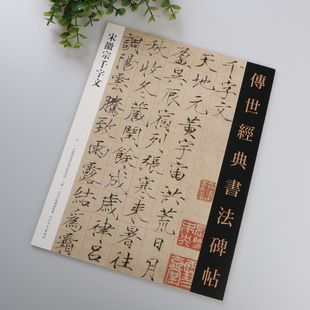 傳世經典書法碑帖
千字文
天地元黃宙洪荒日月
盈昃辰宿列張寒来暑往
秋收冬藏閏餘成歲律吕
調陽雲騰致雨露結為霜
宋徽宗千字文